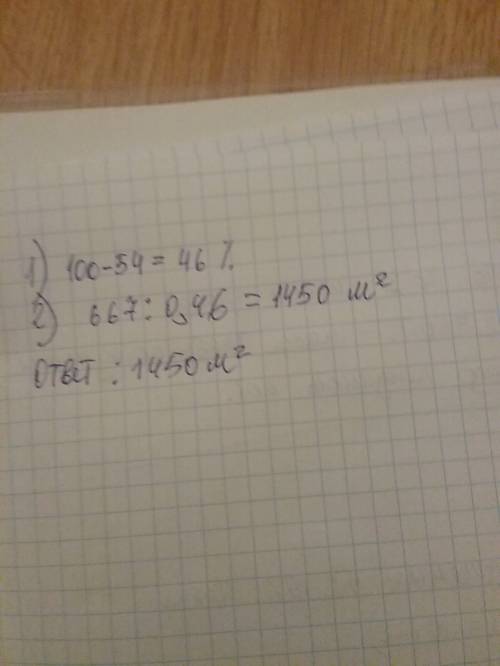 1) 100-54 = 46 %.
2) 667 : 0,46 = 1450 м²
Ответ : 1450 м²